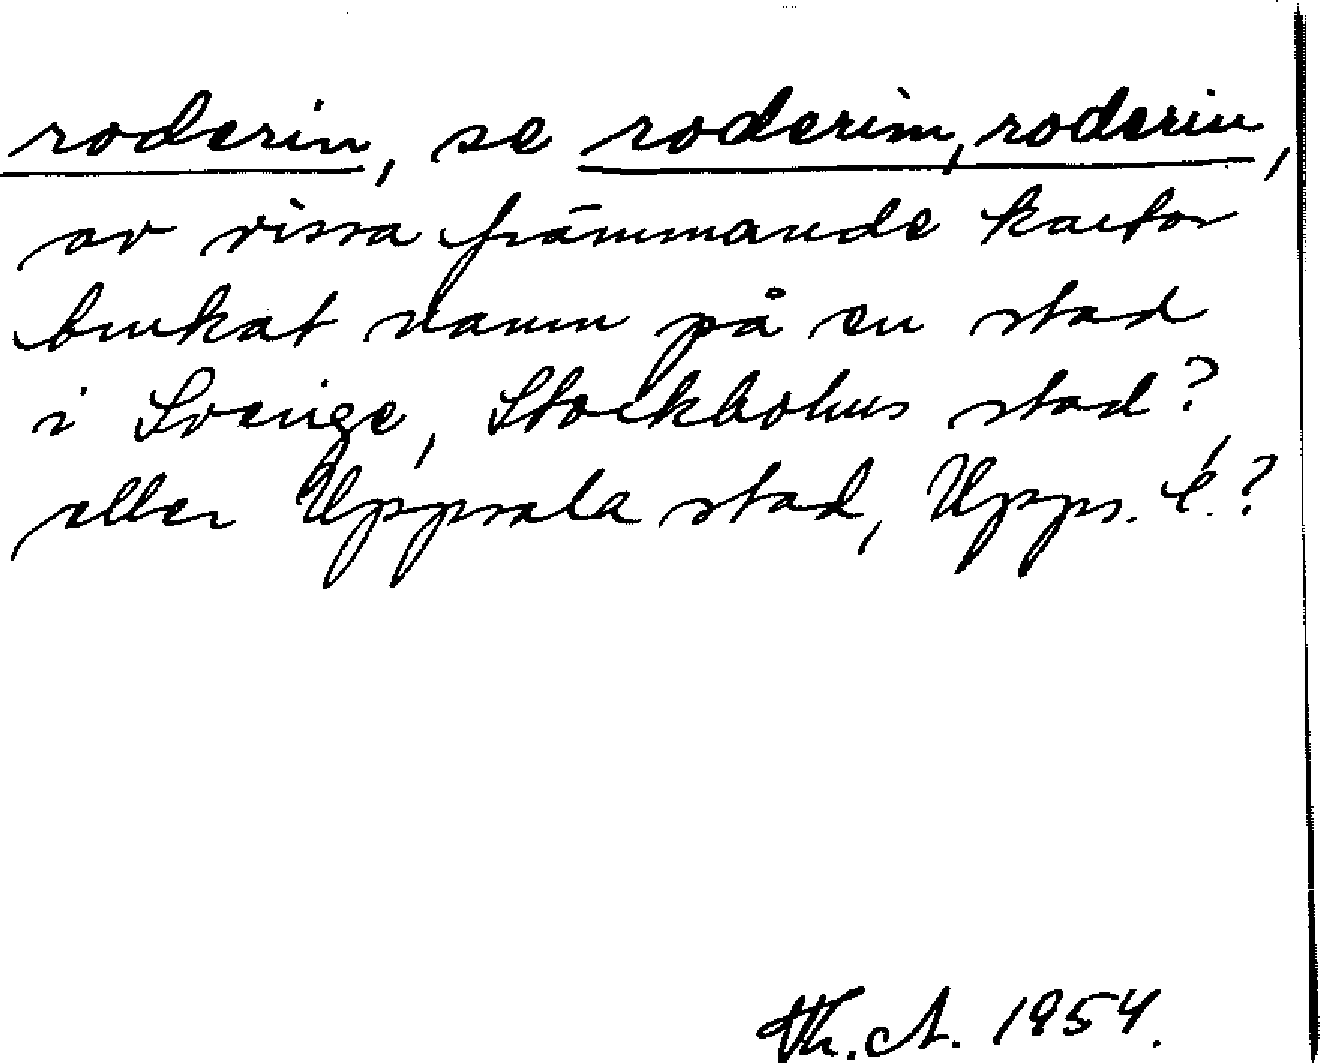 roderin, se roderim, roderin,
av vissa främmande kartor
brukat namn på en stad
i Sverige, Stockholms stad?,
eller Uppsala stad, Upps. l.?
Th. A. 1954.